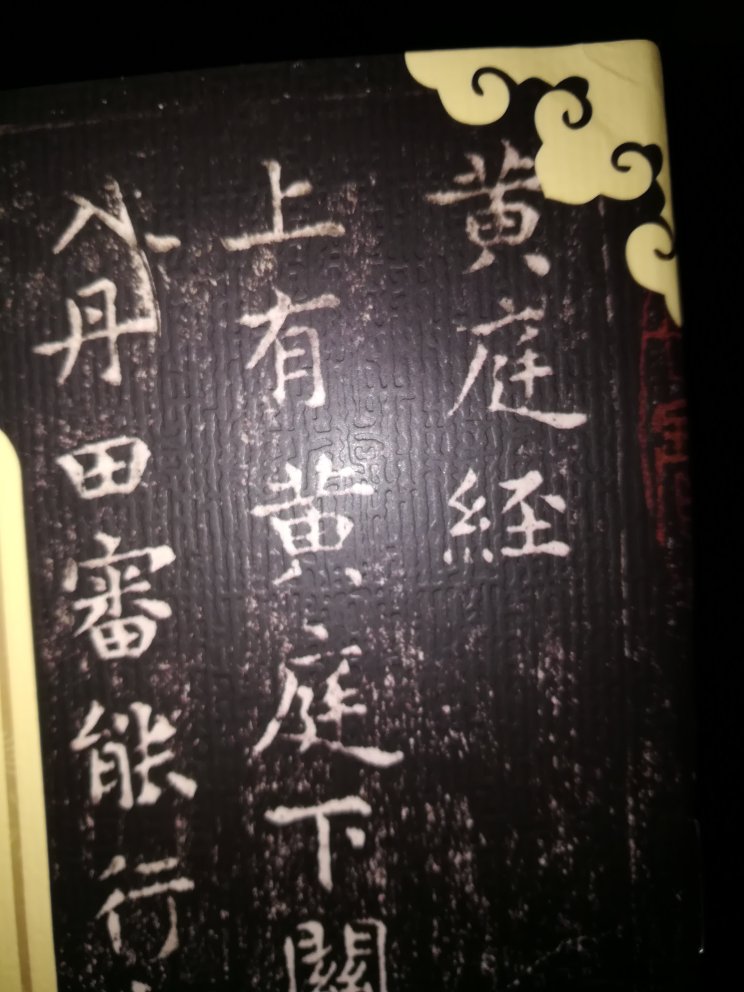 黄庭経
上有黄庭下關
入丹田審能行